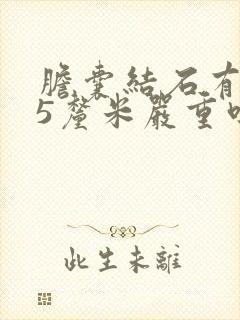 膽囊結石有
5釐米嚴重
此生未離